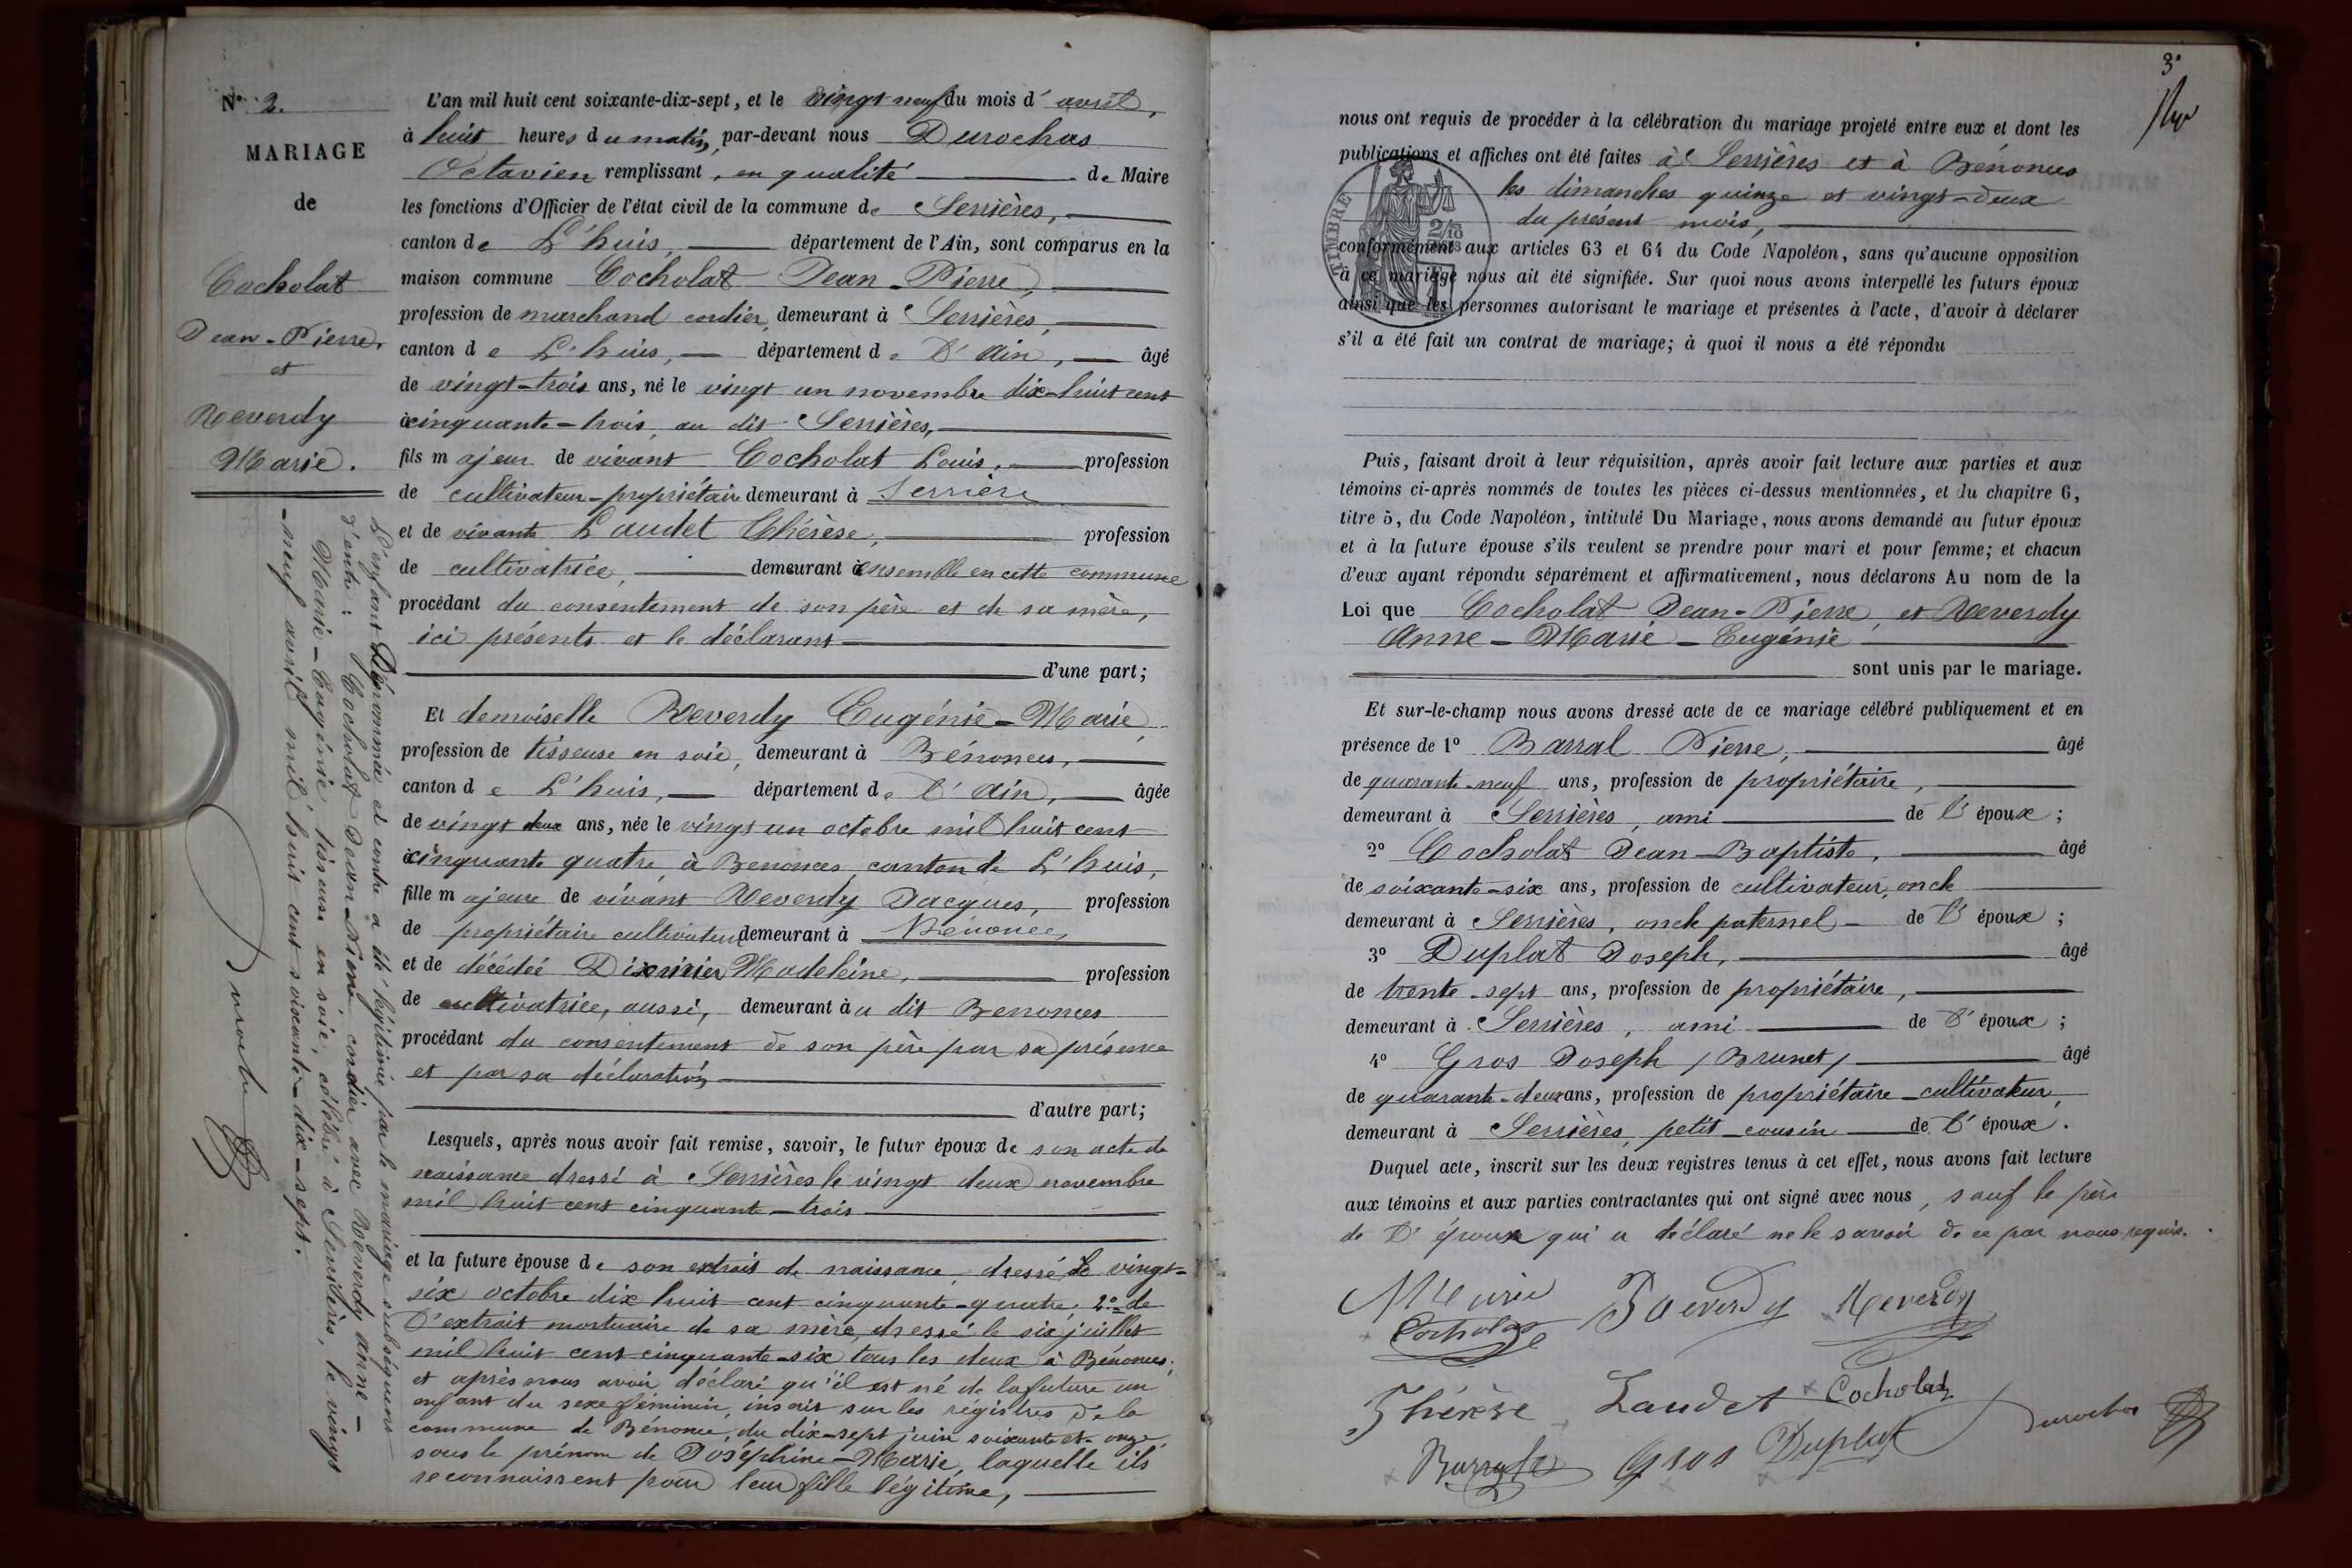 N° 2.
MARIAGE
de
Cocholat
Jean-Pierre.
et
Reverdy
Marie.
L'enfant Dénommée ci contre a été légitimée par le mariage subséquent
d'entre : Cocholat Jean-Pierre cordier avec Reverdy Anne-
Marie-Eugénie tisseuse en soie, célébré à Serrières, le vingt
-neuf avril mil huit cent soixante-dix-sept.
Durochas
L'an mil huit cent soixante-dix-sept, et le vingt neuf du mois d'avril,
à huit heures du matin, par-devant nous Durochas
Octavien remplissant, en qualité de Maire
les fonctions d'Officier de l'état civil de la commune de Serrières,
canton de L'huis, département de l'Ain, sont comparus en la
maison commune Cocholat Jean-Pierre,
profession de marchand cordier, demeurant à Serrières,
canton de L'huis, département de l'Ain, âgé
de vingt-trois ans, né le vingt un novembre dix-huit cent
à cinquante-trois, au dit Serrières,
fils majeur de vivant Cocholat Louis, profession
de cultivateur-propriétaire demeurant à Serrière
et de vivante Laudet Thérèse, profession
de cultivatrice, demeurant à ensemble en cette commune
procédant du consentement de son père et de sa mère,
ici présents et le déclarant
d'une part;
Et demoiselle Reverdy Eugénie-Marie
profession de tisseuse en soie, demeurant à Bénonces,
canton de L'huis, département de l'Ain, âgée
de vingt deux ans, née le vingt un octobre mil huit cent
à cinquante quatre, à Benonces, canton de L'huis,
fille majeure de vivant Reverdy Jacques, profession
de propriétaire cultivateur demeurant à Bénonces,
et de décédée Madeleine, profession
de cultivatrice, aussi, demeurant au dit Benonces
procédant du consentement de son père par sa présence
et par sa déclaration
d'autre part;
Lesquels, après nous avoir fait remise, savoir, le futur époux de son acte de
naissance dressé à Serrières le vingt deux novembre
mil huit cent cinquante-trois
et la future épouse de son extrait de naissance, dressé le vingt-
six octobre dix huit cent cinquante-quatre; 2° de
l'extrait mortuaire de sa mère, dressé le six juillet
mil huit cent cinquante-six tous les deux à Bénonces;
et après nous avoir déclaré qu'il est né de la future un
enfant du sexe féminin, inscrit sur les régistres de la
commune de Bénonce, du dix-sept juin soixante et-onze,
sous le prénom de Joséphine-Marie, laquelle ils
reconnaissent pour leur fille légitime,
3°
nous ont requis de procéder à la célébration du mariage projeté entre eux et dont les
publications et affiches ont été faites à Serrières et à Bénonces
les dimanches quinze et vingt-deux
du présent mois,
TIMBRE
2/10
conformément aux articles 63 et 64 du Code Napoléon, sans qu'aucune opposition
à ce mariage nous ait été signifiée. Sur quoi nous avons interpellé les futurs époux
ainsi que les personnes autorisant le mariage et présentes à l'acte, d'avoir à déclarer
s'il a été fait un contrat de mariage; à quoi il nous a été répondu
Puis, faisant droit à leur réquisition, après avoir fait lecture aux parties et aux
témoins ci-après nommés de toutes les pièces ci-dessus mentionnées, et du chapitre 6,
titre 5, du Code Napoléon, intitulé Du Mariage, nous avons demandé au futur époux
et à la future épouse s'ils veulent se prendre pour mari et pour femme; et chacun
d'eux ayant répondu séparément et affirmativement, nous déclarons Au nom de la
Loi que Cocholat Jean-Pierre, et Reverdy
Anne-Marie-Eugénie
sont unis par le mariage.
Et sur-le-champ nous avons dressé acte de ce mariage célébré publiquement et en
présence de 1° Barral Pierre, âgé
de quarante-neuf ans, profession de propriétaire,
demeurant à Serrières, ami de l'époux;
2° Cocholat Jean-Baptiste, âgé
de soixante-six ans, profession de cultivateur, oncle
demeurant à Serrières, oncle paternel de l'époux;
3° Duplat Joseph, âgé
de trente-sept ans, profession de propriétaire,
demeurant à Serrières, ami de l'époux;
4° Gros Joseph (Brunet) âgé
de quarante-deux ans, profession de propriétaire-cultivateur,
demeurant à Serrières, petit-cousin de l'époux.
Duquel acte, inscrit sur les deux registres tenus à cet effet, nous avons fait lecture
aux témoins et aux parties contractantes qui ont signé avec nous, sauf le père
de l'époux qui a déclaré ne le savoir de ce par nous requis.
Marie Reverdy Reverdy
Cocholat
Thérèse Laudet Cocholat
Durochas
Barral Gros Duplat